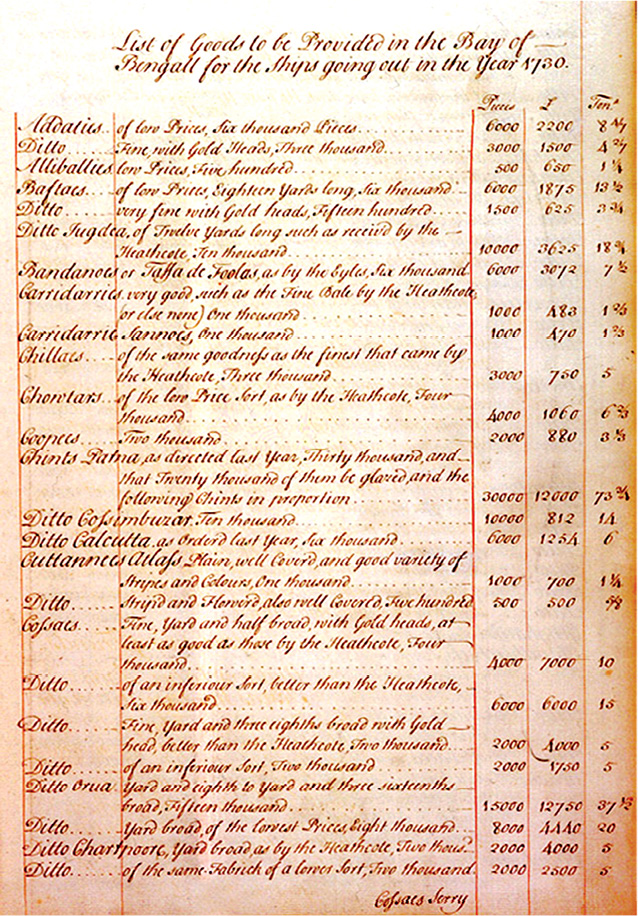 List of Goods to be Provided in the Bay of
Bengall for the Ships going out in the Year 1730.
Pieces £ Tons
Addaties of low Prices, Six thousand Pieces 6000 2200 8 4/7
Ditto Fine, with Gold Heads, Three thousand 3000 1500 4 2/7
Alliballies low Prices, Five hundred 500 650 1 1/4
Baftaes of low Prices, Eighteen Yards long, Six thousand 6000 1875 13 1/2
Ditto very fine with Gold heads, Fifteen hundred 1500 625 3 3/4
Ditto Jugdea, of Twelve Yards long such as receivd by the
Heathcote, Ten thousand 10000 3625 18 3/4
Bandanoes or Taffa de Foolas, as by the Eyles, Six thousand 6000 3072 7 1/2
Carridarries very good, such as the Fine Bale by the Heathcote,
or else none) One thousand 1000 483 1 2/3
Carridarrie Sannoes, One thousand 1000 470 1 2/3
Chillaes of the same goodness as the finest that came by
the Heathcote, Three thousand 3000 750 5
Chowtars of the low Price Sort, as by the Heathcote, Four
thousand 4000 1060 6 2/3
Coopees Two thousand 2000 880 3 1/3
Chints Patna, as directed last Year, Thirty thousand, and
that Twenty thousand of them be glazed, and the
following Chints in proportion 30000 12000 73 3/4
Ditto Cossimbuzar, Ten thousand 10000 812 14
Ditto Calcutta, as Orderd last Year, Six thousand 6000 1254 6
Cuttannees Atlass, Plain, well Coverd, and good variety of
Stripes and Colours, One thousand 1000 700 1 1/4
Ditto Strip'd and Flowerd, also well Covered, Five hundred 500 500 5/8
Cossaes Fine, Yard and half broad, with Gold heads, at
least as good as those by the Heathcote, Four
thousand 4000 7000 10
Ditto of an inferiour Sort, better than the Heathcote,
Six thousand 6000 6000 15
Ditto Fine, Yard and three eighths broad with Gold
head, better than the Heathcote, Two thousand 2000 4000 5
Ditto of an inferiour Sort, Two thousand 2000 1750 5
Ditto Orua Yard and eighth to Yard and three sixteenths
broad, Fifteen thousand 15000 12750 37 1/2
Ditto Yard broad, of the lowest Prices, Eight thousand 8000 4440 20
Ditto Chartpoore, Yard broad as by the Heathcote, Two thous. 2000 4000 5
Ditto of the same Fabrick of a lower Sort, Two thousand 2000 2500 5
Cossaes Jerry